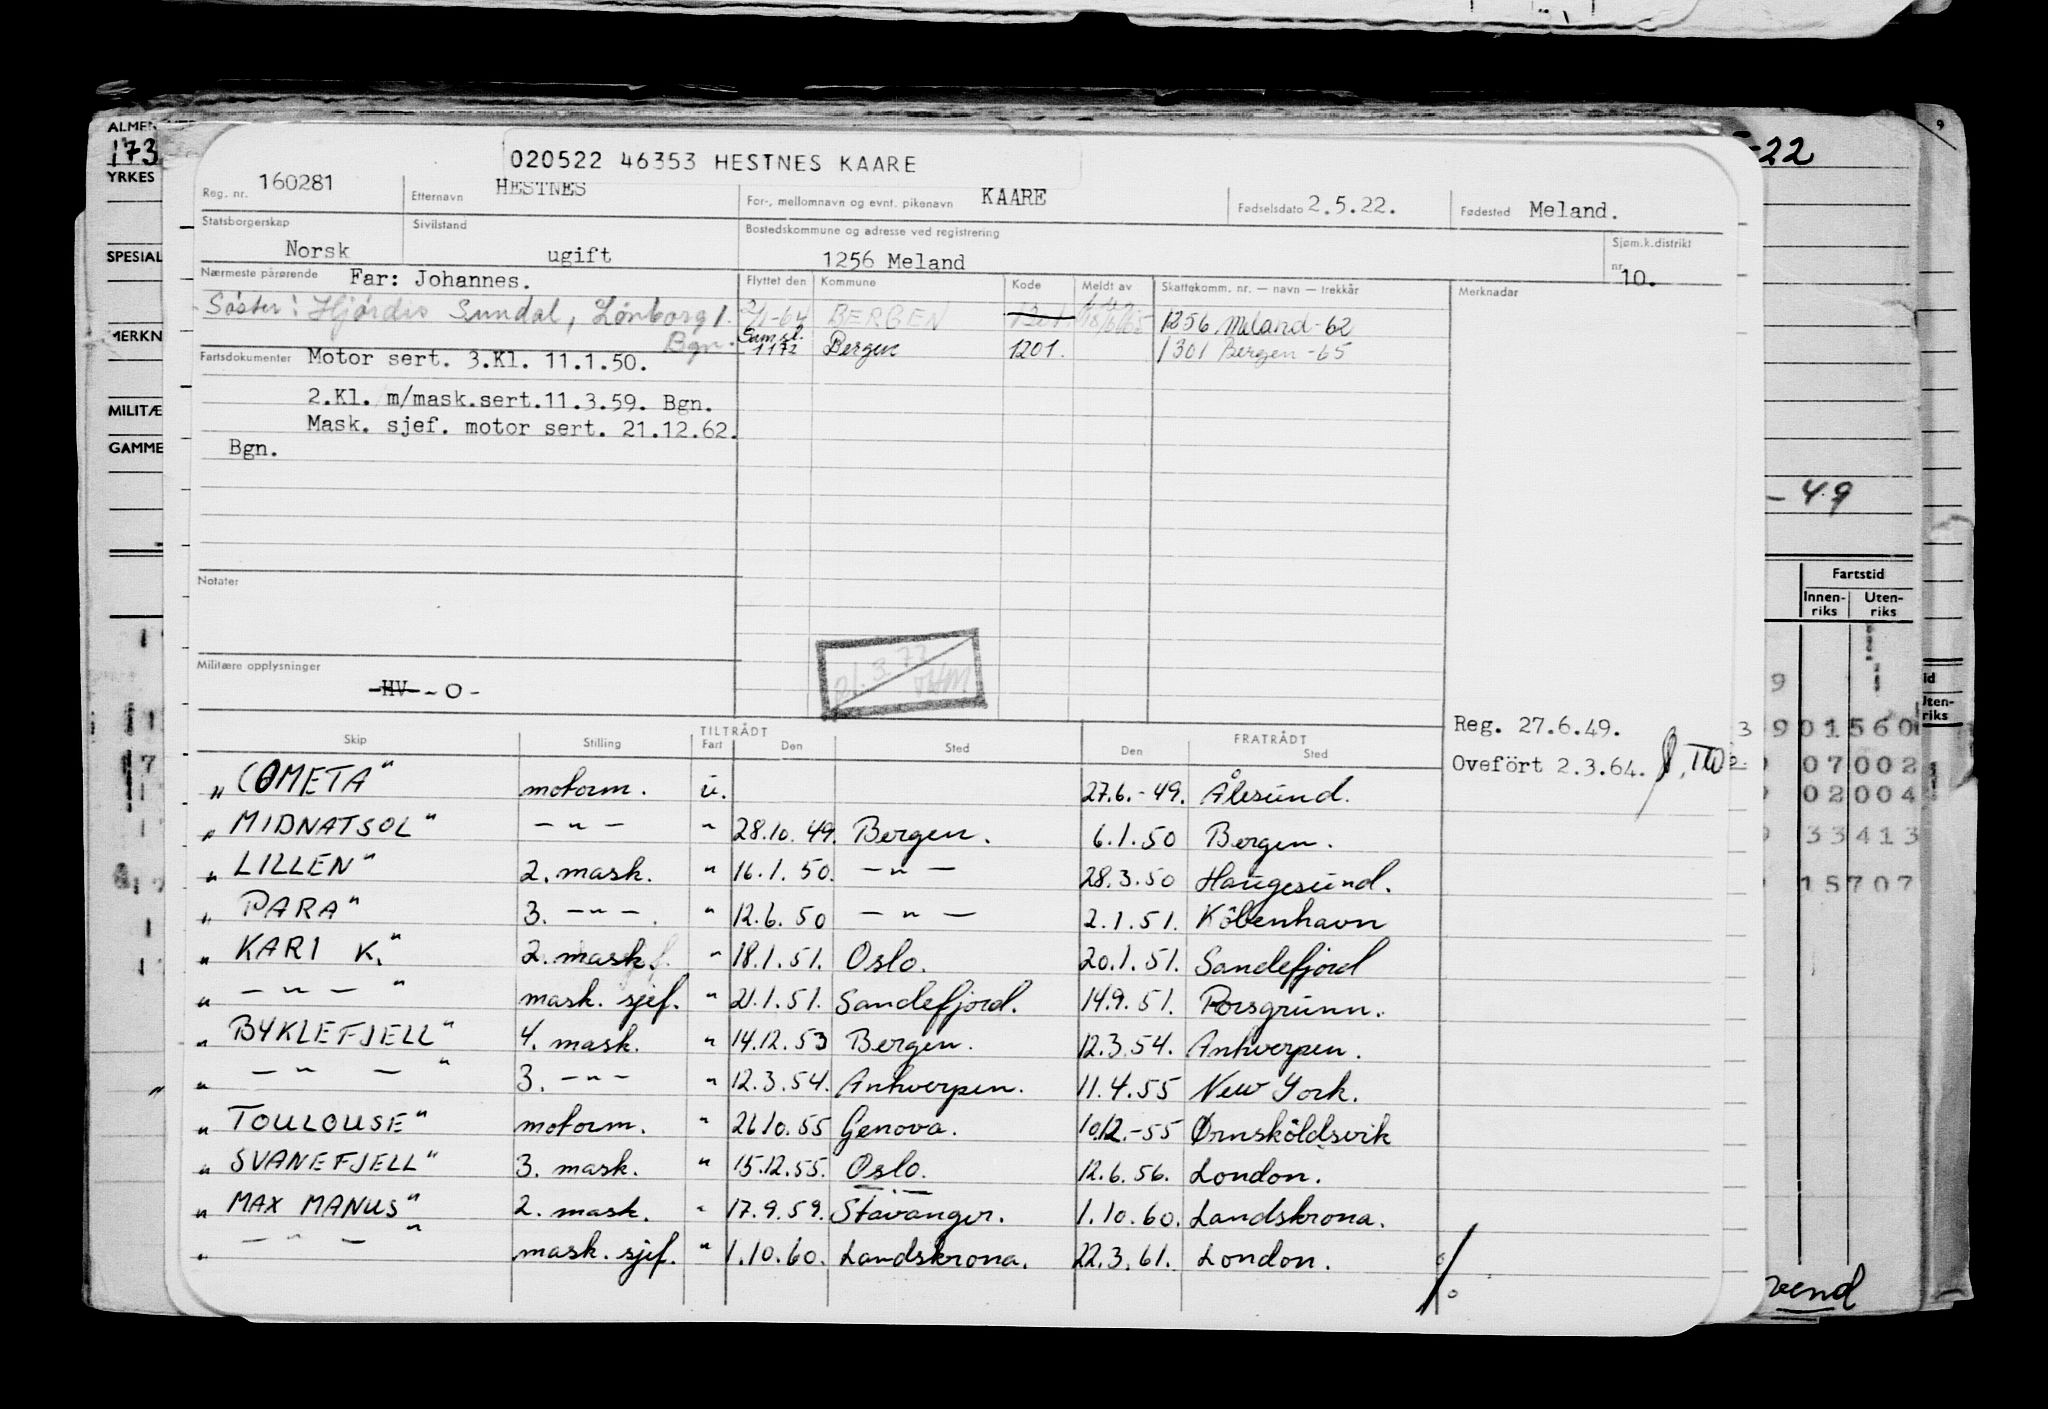 ALMEN
173
YRKES
SPESIAL
MERKN
MILITÆ
GAMME
-22
9
- 49
Fartstid
Innen-riks Uten-riks
020522 46353 HESTNES KAARE
Reg. nr. 160281 Etternavn HESTNES For-, mellomnavn og evnt. pikenavn KAARE Fødselsdato 2.5.22. Fødested Meland.
Statsborgerskap Norsk Sivilstand ugift Bostedskommune og adresse ved registrering 1256 Meland Sjøm.k.distrikt nr. 10.
Nærmeste pårørende Far: Johannes. Flyttet den Kommune Kode Meldt av Skattekomm. nr. — navn — trekkår Merknader
Søster: Hjørdis Sundal, Lønborg 1. 2/1-64 BERGEN 1301 1256 Meland-62
Bgn. Saml. 1172 Bergen 1201. 1301 Bergen-65
Fartsdokumenter Motor sert. 3.Kl. 11.1.50.
2.Kl. m/mask.sert.11.3.59. Bgn.
Mask. sjef. motor sert. 21.12.62.
Bgn.
Notater
Militære opplysninger
-HV- -0-
Reg. 27.6.49.
Oveført 2.3.64.
Skip Stilling TILTRÅDT Fart Den Sted FRATRÅDT Den Sted
„ COMETA" motorm. u. 27.6.-49. Ålesund.
„ MIDNATSOL" — „ — " 28.10.49. Bergen. 6.1.50 Bergen.
„ LILLEN" 2. mask. " 16.1.50. — „ — 28.3.50 Haugesund.
„ PARA" 3. — „ —. " 12.6.50 — „ — 2.1.51. København
„ KARI K." 2. mask. " 18.1.51. Oslo. 20.1.51. Sandefjord
„ — „ — " mask. sjef. " 21.1.51. Sandefjord. 14.9.51. Porsgrunn.
„ BYKLEFJELL" 4. mask. " 14.12.53 Bergen. 12.3.54. Antwerpen.
„ — „ — " 3. — „ — " 12.3.54. Antwerpen. 11.4.55 New York.
„ TOULOUSE" motorm. " 26.10.55 Genova. 10.12.-55 Ørnsköldsvik
„ SVANEFJELL" 3. mask. " 15.12.55. Oslo. 12.6.56. London.
„ MAX MANUS" 2. mask. " 17.9.59. Stavanger. 1.10.60. Landskrona.
„ — „ — " mask. sjef. " 1.10.60. Landskrona. 22.3.61. London.
901560
07002
02004
33413
15707
vend